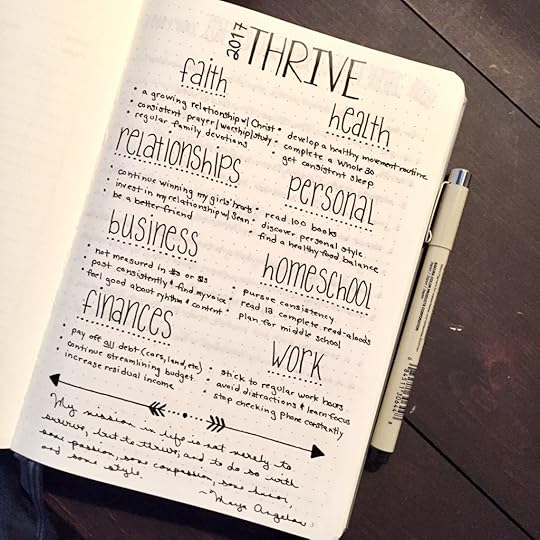 2017 THRIVE
faith
• a growing relationship w/ Christ
• consistent prayer/worship/study
• regular family devotions
health
• develop a healthy movement routine
• complete a Whole 30
• get consistent sleep
relationships
• continue winning my girls' hearts
• invest in my relationship w/ Sean
• be a better friend
personal
• read 100 books
• discover personal style
• find a healthy food balance
business
• not measured in #s or $s
• post consistently & find my voice
• feel good about rhythm & content
homeschool
• pursue consistency
• read 13 complete read-alouds
• plan for middle school
finances
• pay off all debt (cars, land, etc)
• continue streamlining budget
• increase residual income
work
• stick to regular work hours
• avoid distractions & learn focus
• stop checking phone constantly
My mission in life is not merely to
survive, but to thrive; and to do so with
some passion, some compassion, some humor,
and some style.
~Maya Angelou